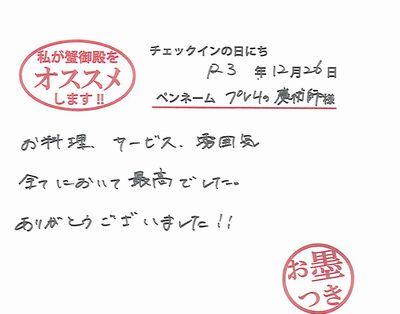 私が蟹御殿を
オススメ
します!!
チェックインの日にち
R3 年12月26日
ペンネーム プレリの魔術師様
お料理、サービス、雰囲気
全てにおいて最高でした。
ありがとうございました!!
お墨
つき